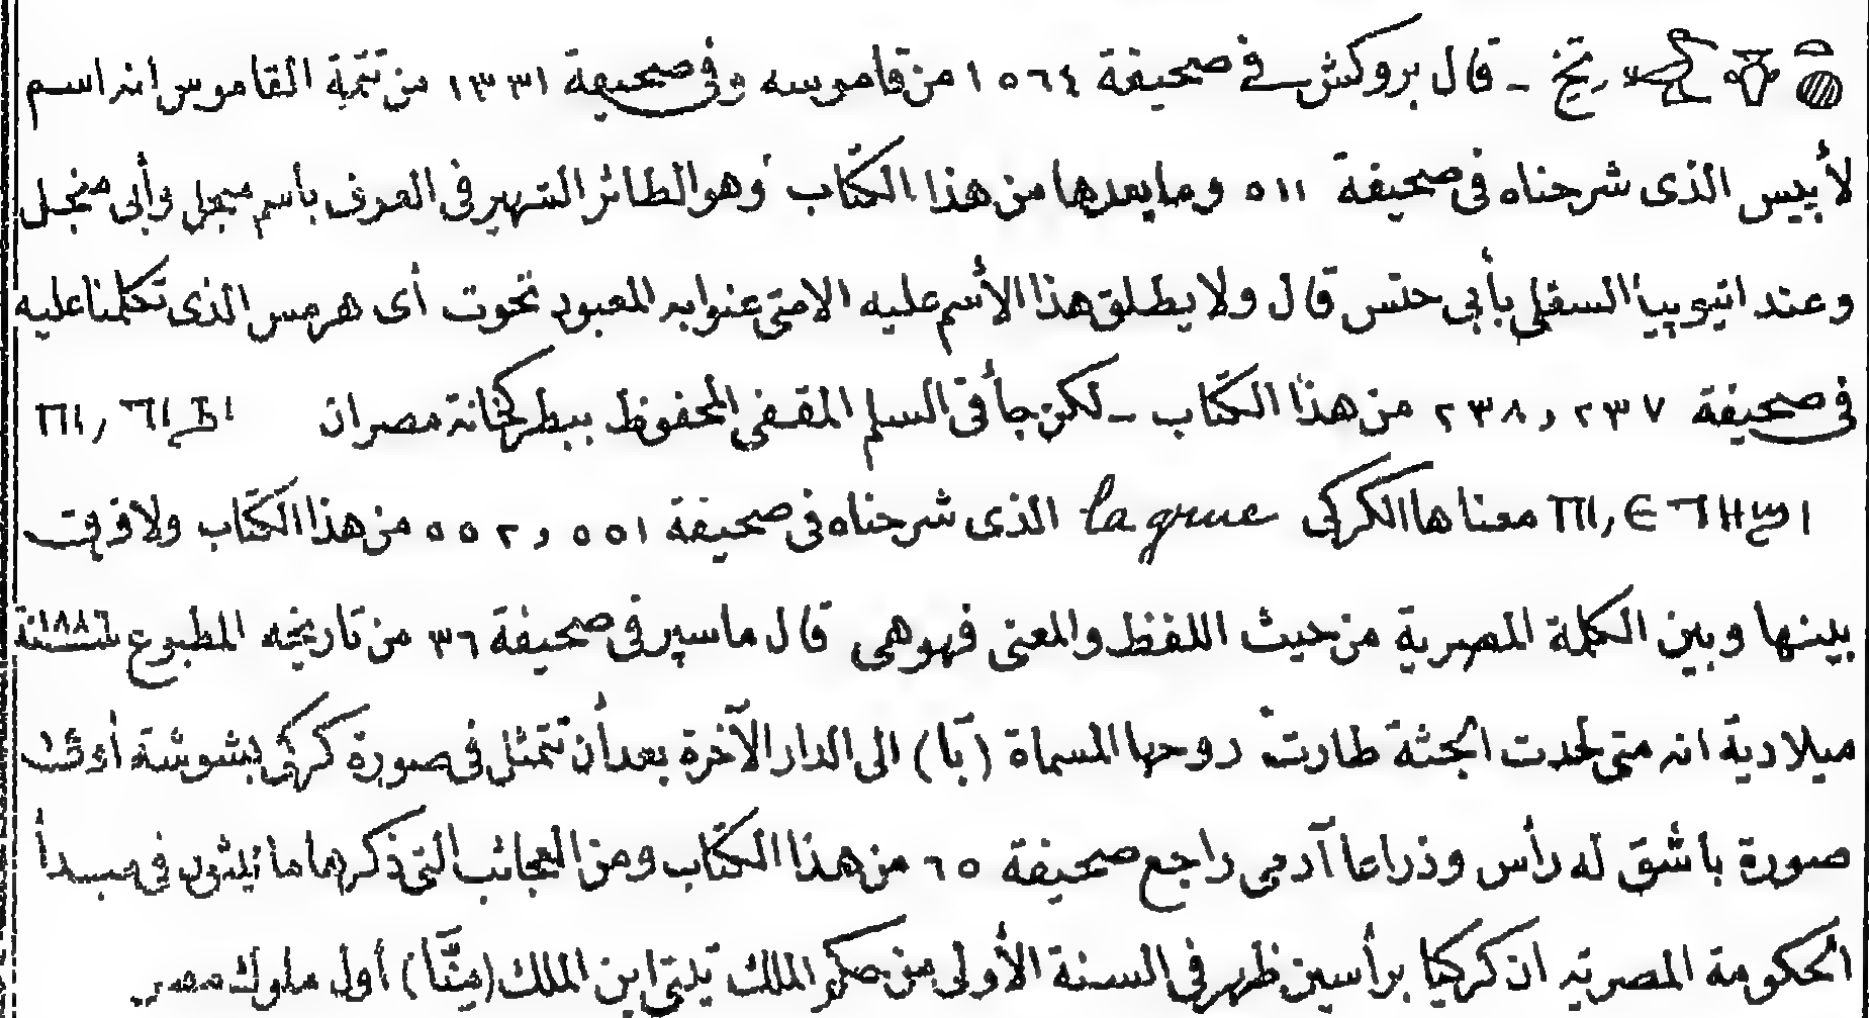 تخ - قال بروكش فى صحيفة ١٥٦٤ من قاموسه وفى صحيفة ١٣٣١ من تتمة القاموس انه اسم
لأبيس الذى شرحناه فى صحيفة ٥١١ وما بعدها من هذا الكتاب وهو الطائر الشهير فى العرف باسم منجل وأبى منجل
وعند اتيوبيا السفلى بأبى حنس قال ولا يطلق هذا الأسم عليه الا متى عنوا به المعبود تحوت أى هرمس الذى تكلمنا عليه
فى صحيفة ٢٣٧ و ٢٣٨ من هذا الكتاب - لكن جأ فى السلم المقفى المحفوظ ببطركخانة مصر ان
معناها الكركى la grue الذى شرحناه فى صحيفة ٥٥١ و ٥٥٢ من هذا الكتاب ولا فرق
بينها وبين الكلمة المصرية من حيث اللفظ والمعنى فهو هى قال ماسپر فى صحيفة ٣٦ من تاريخه المطبوع سنة ١٨٨٦
ميلادية انه متى لحدت الجثة طارت روحها المسماة (بَا) الى الدار الآخرة بعد أن تتمثل فى صورة كركى بشوشة أو فى
صورة باشق له رأس وذراعا آدمى راجع صحيفة ٦٥ من هذا الكتاب ومن العجائب التى ذكرها مانيثون فى مبدأ
الحكومة المصرية ان كركيا برأسين ظهر فى السنة الأولى من حكم الملك تيتى ابن الملك (مِنَّا) أول ملوك مصر